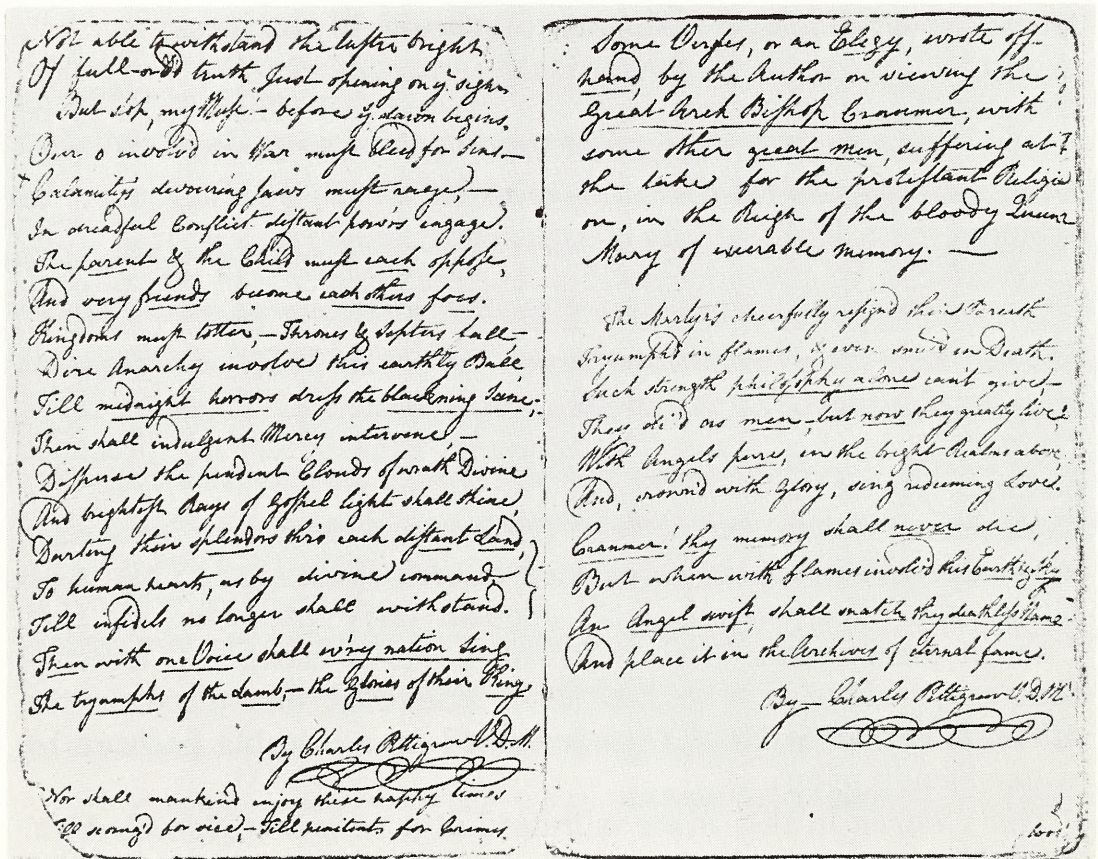 Not able to withstand the lustre bright
Of full-orb'd truth Just opening on ye sight
But stop, my Muse! – before ye dawn begins,
Our o involv'd in War must bleed for Sins –
Calamity's devouring Jaws must rage, –
In dreadful Conflict distant pow'rs engage.
The parent & the Child must each oppose,
And very friends become each others foes.
Kingdoms must totter, – Thrones & Septers fall –
Dire Anarchy involve this earthly Ball
Till midnight horrors dress the blackening Scene; –
Then shall indulgent Mercy intervene, –
Disperse the pendent Clouds of wrath Divine
And brightest Rays of Gospel light shall shine,
Darting their splendors thro each distant Land,
To human hearts, as by divine command,
Till infidels no longer shall withstand.
Then with one Voice shall ev'ry nation Sing
The tryumphs of the Lamb, – the Glories of their King
By Charles Pettigrew V.D.M.
Nor shall mankind enjoy these happy times
Till scourg'd for vice, – Till penitents for Crimes
Some Verses, or an Elegy, wrote off-
hand, by the Author on viewing the
Great Arch Bishop Cranmer, with
some other great men, suffering at
the stake for the protestant Religi
on, in the Reign of the bloody Queen
Mary of execrable memory. —
The Martyrs cheerfully resign'd their breath
Tryumph'd in flames, & even smil'd in Death.
Such strength philosophy alone can't give, –
These di'd as men, but now they greatly live,
With Angels pure, in the bright Realms above,
And, crown'd with Glory, sing redeeming Love.
Cranmer! thy memory shall never die,
But when with flames involv'd this Earth & Sky
An Angel swift, shall snatch thy deathless Name
And place it in the Archives of eternal fame.
By – Charles Pettigrew V.D.M.